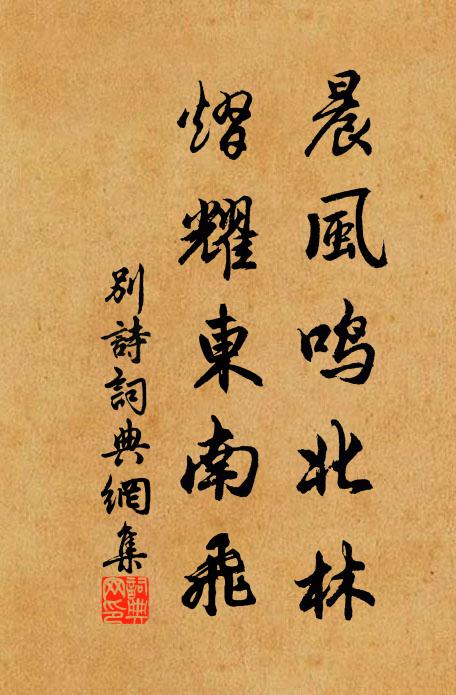 晨風鳴北林
熠耀東南飛
別詩詞典網集
詞典網印